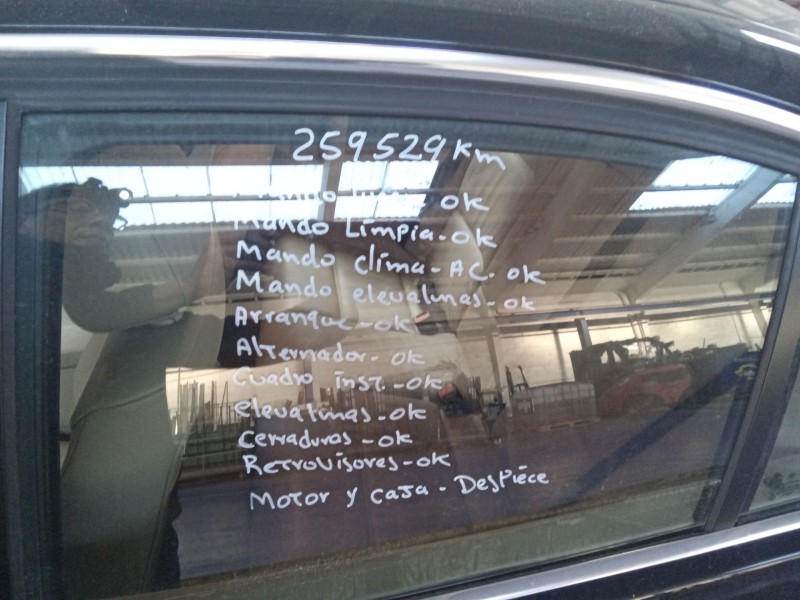 259529 Km
Mando OK
Mando Limpia-OK
Mando clima-AC. OK
Mando elevalunas-OK
Arranque-OK
Alternador-OK
Cuadro inst.-OK
elevalunas-OK
Cerraduras-OK
Retrovisores-OK
Motor y caja-Despiece